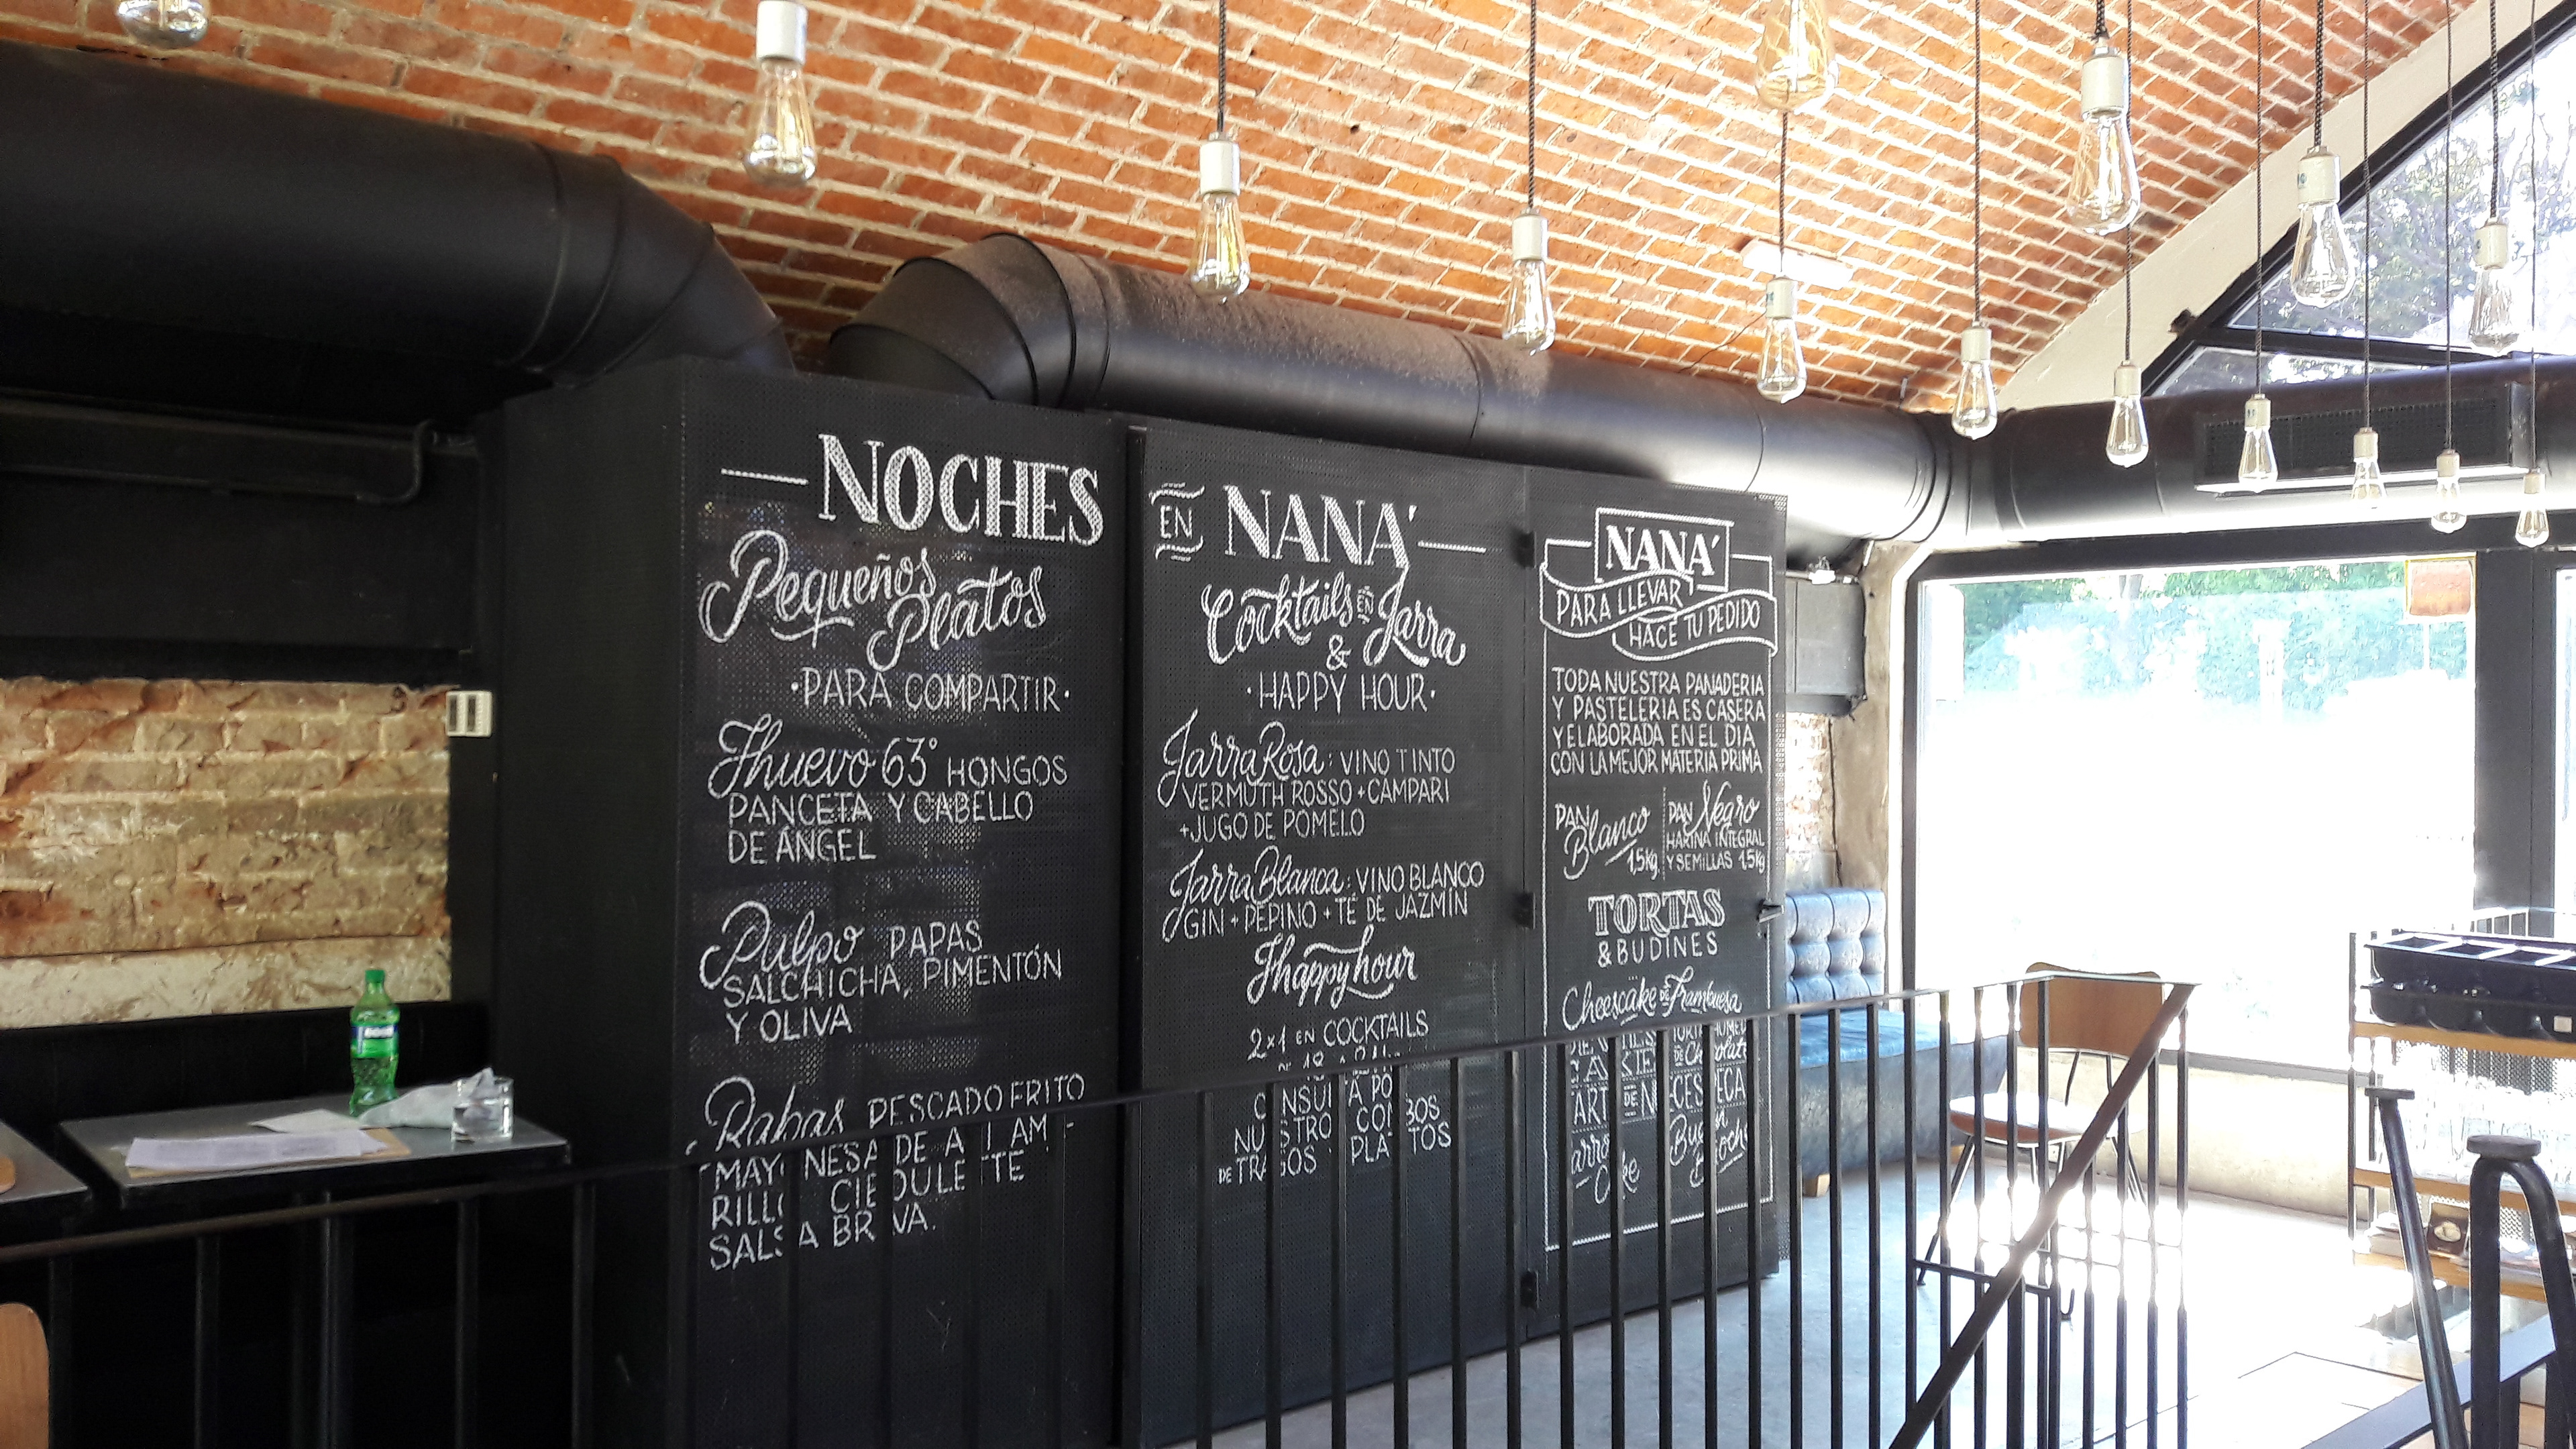 NOCHES
Pequeños
Platos
·PARA COMPARTIR·
Huevo 63° HONGOS
PANCETA Y CABELLO
DE ÁNGEL
Pulpo PAPAS
SALCHICHA, PIMENTÓN
Y OLIVA
Rabas PESCADO FRITO
MAYONESA DE
CIBOULETTE
SALSA BRAVA.
EN NANÁ
Cocktails EN Jarra
&
·HAPPY HOUR·
Jarra Rosa: VINO TINTO
VERMUTH ROSSO + CAMPARI
+JUGO DE POMELO
Jarra Blanca: VINO BLANCO
GIN + PEPINO + TÉ DE JAZMÍN
Happy hour
2x1 EN COCKTAILS
CONSULTÁ POR
NUESTROS COMBOS
DE TRAGOS PLATITOS
NANÁ
PARA LLEVAR
HACE TU PEDIDO
TODA NUESTRA PANADERIA
Y PASTELERIA ES CASERA
Y ELABORADA EN EL DIA
CON LA MEJOR MATERIA PRIMA
PAN
Blanco
1,5kg
PAN Negro
HARINA INTEGRAL
Y SEMILLAS 1,5kg
TORTAS
& BUDINES
Cheescake DE Frambuesa
DE Chocolate
DE
Carrot
Cake